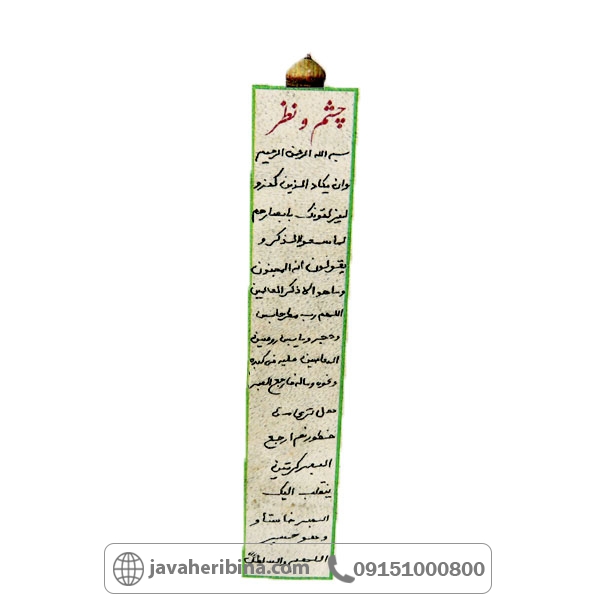 چشم و نظر
بسم الله الرحمن الرحیم
وان یکاد الذین کفرو
لیزلقونک بابصارهم
لما سمعو الذکر و
یقولون انه المجنون
وماهو الا ذکر للعالمین
اللهم رب مطر حابس
وحجر ویابس
العاین علیه فی کبده
فارجع البصر
هل تری من
فطور ثم ارجع
البصر کرتین
ینقلب الیک
البصر خاسئا و
وهو حسیر
javaheribina.com 09151000800